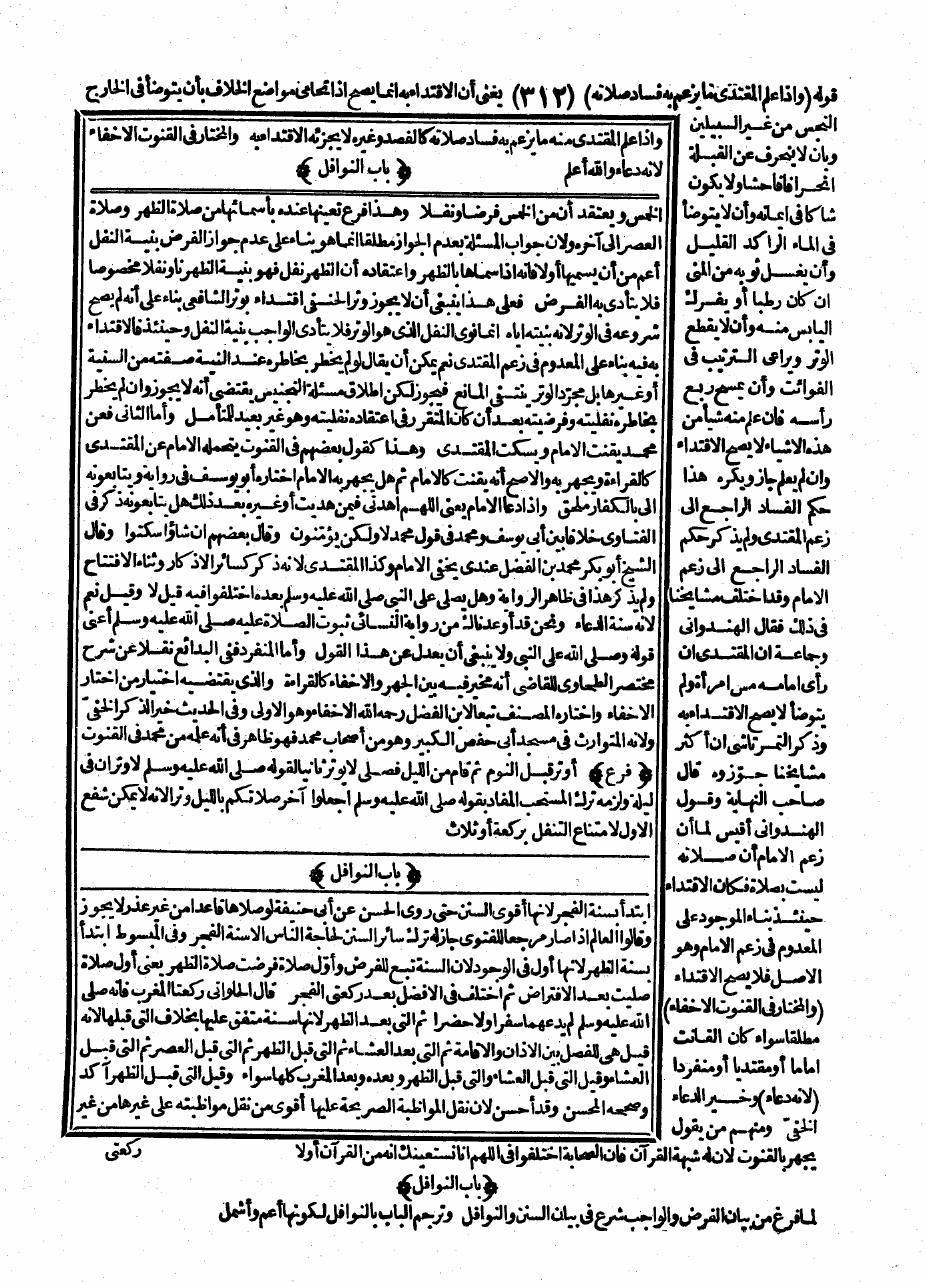 قوله (واذا علم المقتدى ما يزعم به فساد صلاته) (٣١٢) يعنى أن الاقتداء به انما يصح اذا تحامى مواضع الخلاف بأن يتوضأ فى الخارج
النجس من غير السبيلين
وبأن لا ينحرف عن القبلة
انحرافا فاحشا ولا يكون
شاكا فى ايمانه وأن لا يتوضأ
فى الماء الراكد القليل
وأن يغسل ثوبه من المنى
ان كان رطبا أو يفرك
اليابس منه وأن لا يقطع
الوتر ويراعى الترتيب فى
الفوائت وأن يمسح ربع
رأسه فان علم منه شيأ من
هذه الاشياء لا يصح الاقتداء
وان لم يعلم جاز ويكره هذا
حكم الفساد الراجع الى
زعم المقتدى ولم يذكر حكم
الفساد الراجع الى زعم
الامام وقد اختلف مشايخنا
فى ذلك فقال الهندوانى
وجماعة ان المقتدى ان
رأى امامه مس امرأة ولم
يتوضأ لا يصح الاقتداء به
وذكر التمرتاشى ان أكثر
مشايخنا جوّزوه قال
صاحب النهاية وقول
الهندوانى أقيس لما أن
زعم الامام أن صلاته
ليست بصلاة فكان الاقتداء
حينئذ بناء الموجود على
المعدوم فى زعم الامام وهو
الاصل فلا يصح الاقتداء
(والمختار فى القنوت الاخفاء)
مطلقا سواء كان القانت
اماما أو مقتديا أو منفردا
(لانه دعاء) وخير الدعاء
الخفىّ ومنهم من يقول
يجهر بالقنوت لان له شبهة القرآن فان الصحابة اختلفوا فى اللهم انا نستعينك انه من القرآن أولا
﴿باب النوافل﴾
لما فرغ من بيان الفرض والواجب شرع فى بيان السنن والنوافل وترجم الباب بالنوافل لكونها أعم وأشمل
واذا علم المقتدى منه ما يزعم به فساد صلاته كالفصد وغيره لا يجزئه الاقتداء به والمختار فى القنوت الاخفاء
لانه دعاء والله أعلم ﴿باب النوافل﴾
الخمس ويعتقد أن من الخمس فرضا ونفلا وهذا فرع تعينها عنده بأسمائها من صلاة الظهر وصلاة
العصر الى آخره ولان جواب المسئلة بعدم الجواز مطلقا انما هو بناء على عدم جواز الفرض بنية النفل
أعم من أن يسميها أولا فانه اذا سماها بالظهر واعتقاده أن الظهر نفل فهو بنية الظهر ناو نفلا مخصوصا
فلا يتأدى به الفرض فعلى هذا ينبغى أن لا يجوز وتر الحنفى اقتداء بوتر الشافعى بناء على أنه لم يصح
شروعه فى الوتر لانه بنيته اياه انما نوى النفل الذى هو الوتر فلا يتأدى الواجب بنية النفل وحينئذ فالاقتداء
به فيه بناء على المعدوم فى زعم المقتدى نعم يمكن أن يقال لو لم يخطر بخاطره عند النية صفته من السنية
أو غيرها بل مجرّد الوتر ينتفى المانع فيجوز لكن اطلاق مسئلة التجنيس يقتضى أنه لا يجوز وان لم يخطر
بخاطره نفليته وفرضيته بعد أن كان المتقرر فى اعتقاده نفليته وهو غير بعيد للتأمل وأما الثانى فعن
محمد يقنت الامام ويسكت المقتدى وهذا كقول بعضهم فى القنوت يتحمله الامام عن المقتدى
كالقراءة ويجهر به والاصح أنه يقنت كالامام ثم هل يجهر به الامام اختاره أبو يوسف فى رواية ويتابعونه
الى بالكفار ملحق واذا دعا الامام يعنى اللهم اهدنى فيمن هديت أو غيره بعد ذلك هل يتابعونه ذكر فى
الفتاوى خلافا بين أبى يوسف ومحمد فى قول محمد لا ولكن يؤمّنون وقال بعضهم ان شاؤا سكتوا وقال
الشيخ أبو بكر محمد بن الفضل عندى يخفى الامام وكذا المقتدى لانه ذكر كسائر الاذكار وثناء الافتتاح
ولم يذكر هذا فى ظاهر الرواية وهل يصلى على النبى صلى الله عليه وسلم بعده اختلفوا فيه قيل لا وقيل نعم
لانه سنة الدعاء ونحن قد أوعدناك من رواية النسائى ثبوت الصلاة عليه صلى الله عليه وسلم أعنى
قوله وصلى الله على النبى ولا ينبغى أن يعدل عن هذا القول وأما المنفرد ففى البدائع نقلا عن شرح
مختصر الطحاوى للقاضى أنه مخير فيه بين الجهر والاخفاء كالقراءة والذى يقتضيه اختيار من اختار
الاخفاء واختاره المصنف تبعا لابن الفضل رحمه الله الاخفاء وهو الاولى وفى الحديث خير الذكر الخفىّ
ولانه المتوارث فى مسجد أبى حفص الكبير وهو من أصحاب محمد فهو ظاهر فى أنه علمه من محمد فى القنوت
﴿فرع﴾ أوتر قبل النوم ثم قام من الليل فصلى لا يوتر ثانيا لقوله صلى الله عليه وسلم لا وتران فى
ليلة ولزمه ترك المستحب المفاد بقوله صلى الله عليه وسلم اجعلوا آخر صلاتكم بالليل وترا لانه لا يمكن شفع
الاول لامتناع التنفل بركعة أو ثلاث
﴿باب النوافل﴾
ابتدأ بسنة الفجر لانها أقوى السنن حتى روى الحسن عن أبى حنيفة لو صلاها قاعدا من غير عذر لا يجوز
وقالوا العالم اذا صار مرجعا للفتوى جاز له ترك سائر السنن لحاجة الناس الا سنة الفجر وفى المبسوط ابتدأ
بسنة الظهر لانها أول فى الوجود لان السنة تبع للفرض وأوّل صلاة فرضت صلاة الظهر يعنى أول صلاة
صليت بعد الافتراض ثم اختلف فى الافضل بعد ركعتى الفجر قال الحلوانى ركعتا المغرب فانه صلى
الله عليه وسلم لم يدعهما سفرا ولا حضرا ثم التى بعد الظهر لانها سنة متفق عليها بخلاف التى قبلها لانه
قيل هى للفصل بين الاذان والاقامة ثم التى بعد العشاء ثم التى قبل الظهر ثم التى قبل العصر ثم التى قبل
العشاء وقيل التى قبل العشاء والتى قبل الظهر وبعده وبعد المغرب كلها سواء وقيل التى قبل الظهر آكد
وصححه المحسن وقد أحسن لان نقل المواظبة الصريحة عليها أقوى من نقل مواظبته على غيرها من غير
ركعتى